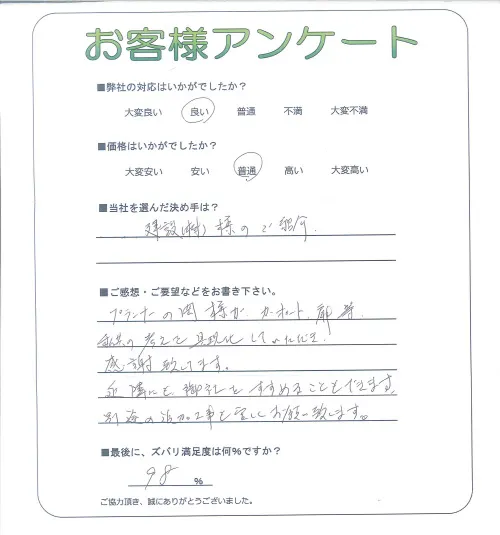 お客様アンケート
■弊社の対応はいかがでしたか？
大変良い 良い 普通 不満 大変不満
■価格はいかがでしたか？
大変安い 安い 普通 高い 大変高い
■当社を選んだ決め手は？
建設(株)様のご紹介.
■ご感想・ご要望などをお書き下さい。
プランナーの 様が カーポート、 等.
の考えを具現化していただき.
感謝致してます。
近隣にも御社をすすめることもできます。
別途の追加工事も宜しくお願い致します。
■最後に、ズバリ満足度は何%ですか？
98 %
ご協力頂き、誠にありがとうございました。